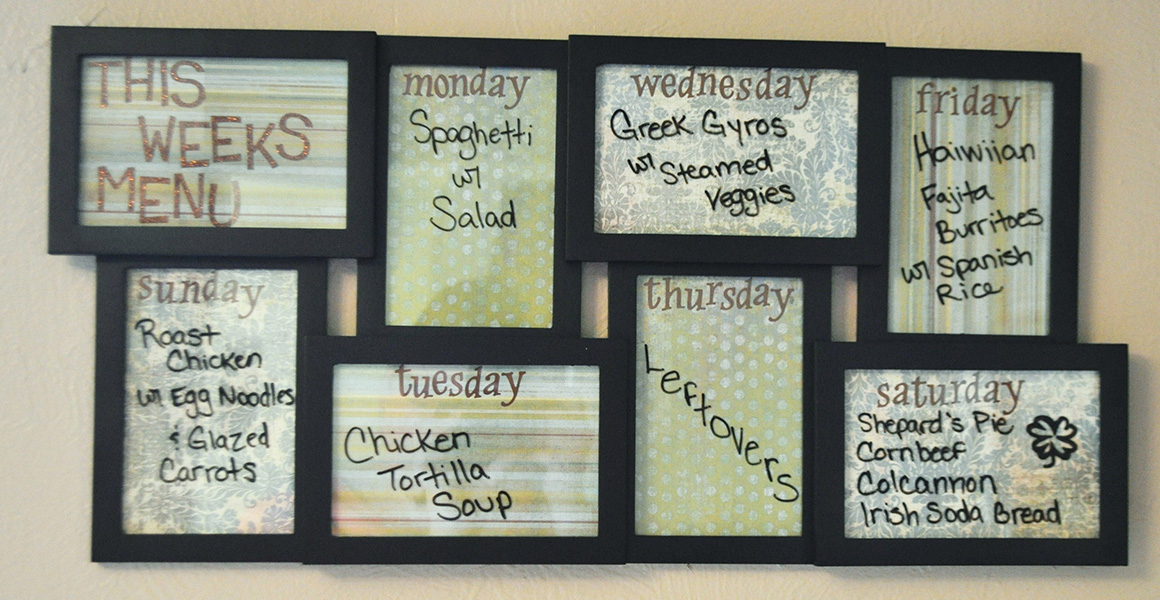 THIS
WEEKS
MENU
sunday
Roast
Chicken
w/ Egg Noodles
& Glazed
Carrots
monday
Spaghetti
w/
Salad
tuesday
Chicken
Tortilla
Soup
wednesday
Greek Gyros
w/ Steamed
Veggies
thursday
Leftovers
friday
Haiwiian
Fajita
Burritoes
w/ Spanish
Rice
saturday
Shepard's Pie
Cornbeef
Colcannon
Irish Soda Bread